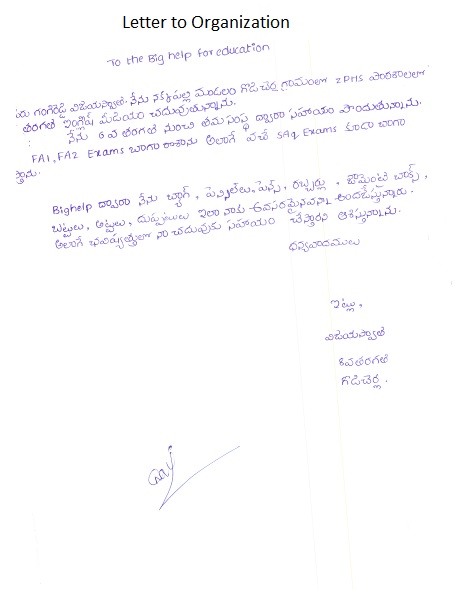 Letter to Organization
To the Big help for education
గంగిరెడ్డి విజయస్వాతి. నేను నక్కపల్లి మండలం గొడిచెర్ల గ్రామంలో ZPHS పాఠశాలలో
తరగతి ఇంగ్లీష్ మీడియం చదువుతున్నాను.
నేను 6 వ తరగతి నుంచి తమ సంస్థ ద్వారా సహాయం పొందుతున్నాను.
FA1, FA2 Exams బాగా రాశాను అలాగే వచ్చే SA2 Exams కూడా బాగా
స్తాను.
Bighelp ద్వారా నేను బ్యాగ్, పెన్సిల్‌లు, పెన్స్, రబ్బర్లు, జామెంట్రి బాక్స్,
బుక్లు, అట్టలు, దుప్పట్లు ఇలా నాకు అవసరమైనవన్ని అందజేస్తున్నారు.
అలాగే భవిష్యత్తులో నా చదువుకు సహాయం చేస్తారని ఆశిస్తున్నాను.
ధన్యవాదములు
ఇట్లు,
విజయస్వాతి
తరగతి
గొడిచెర్ల.